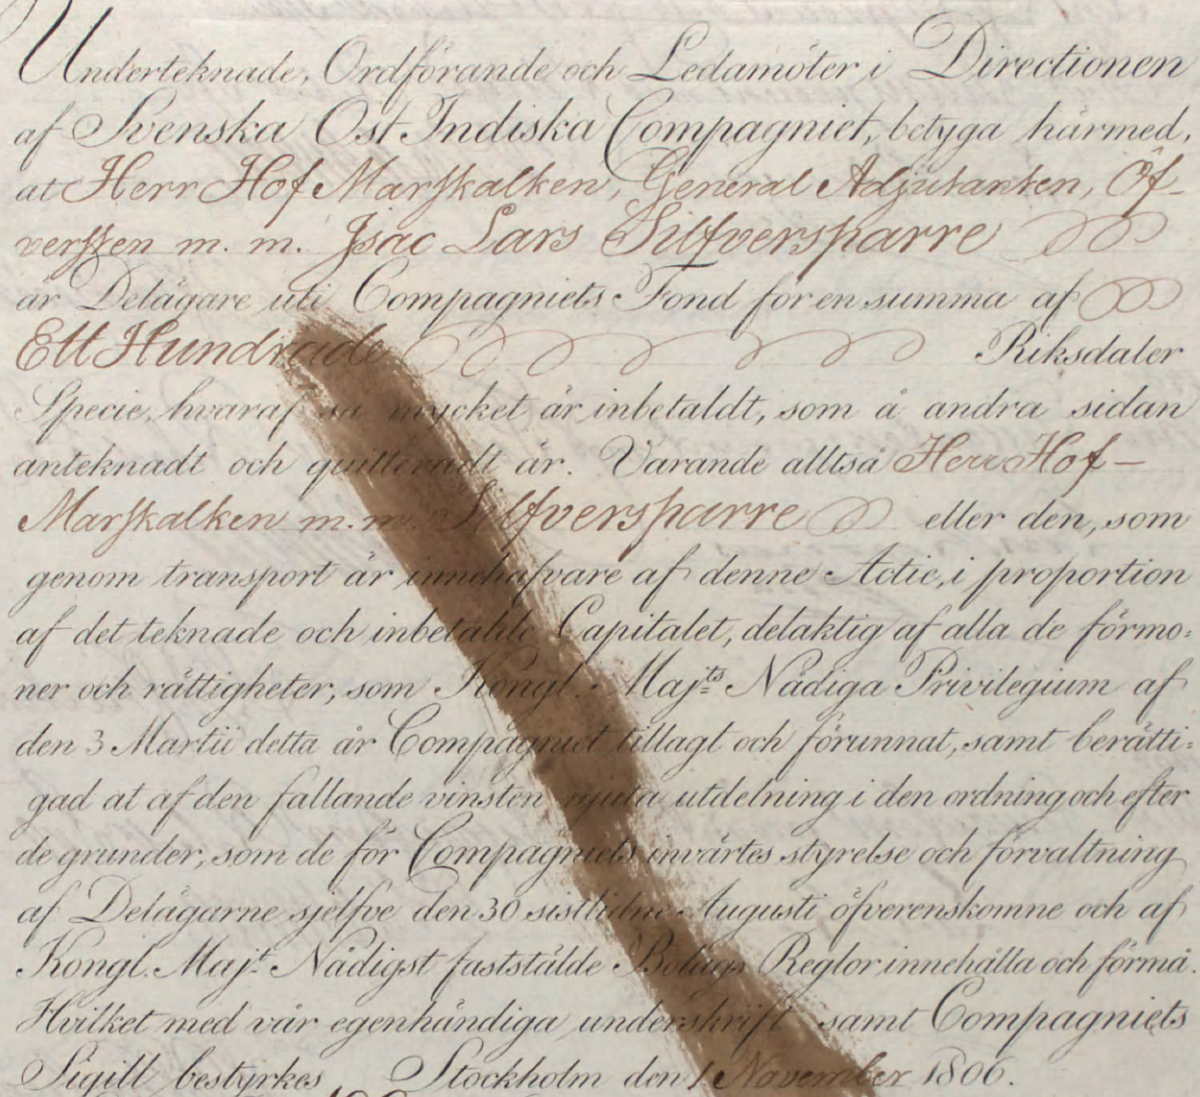 Underteknade, Ordförande och Ledamöter i Directionen
af Svenska Ost Indiska Compagniet, betyga härmed,
at Herr Hof Marskalken, General Adjutanten, Öf-
versten m. m. Isac Lars Silfversparre
är Delägare uti Compagniets Fond för en summa af
Ett Hundrade Riksdaler
Specie, hvaraf så mycket är inbetaldt, som å andra sidan
anteknadt och quitteradt är. Varande alltså Herr Hof-
Marskalken m. m. Silfversparre eller den, som
genom transport är innehafvare af denne Actie, i proportion
af det teknade och inbetahlte Capitalet, delaktig af alla de förmo:
ner och rättigheter, som Kongl. Maj:ts Nådiga Privilegium af
den 3 Martii detta år Compagniet tillagt och förunnat, samt berätti:
gad at af den fallande vinsten njuta utdelning i den ordning och efter
de grunder, som de för Compagniets invärtes styrelse och förvaltning
af Delägarne sjelfve den 30 sistlidne Augusti öfverenskomne och af
Kongl. Maj:t Nådigst fastställde Bolags Reglor innehålla och förmå.
Hvilket med vår egenhändiga underskrift samt Compagniets
Sigill bestyrkes Stockholm den 1 November 1806.